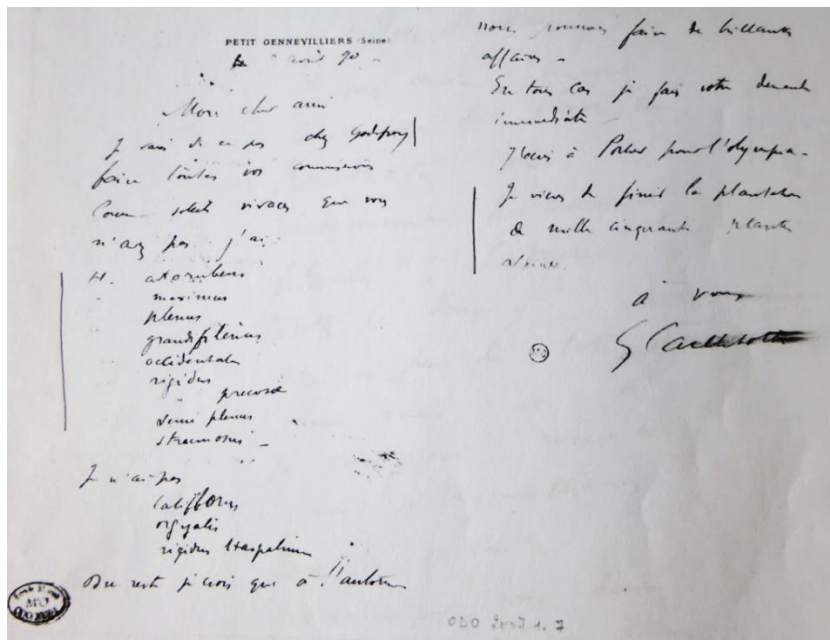 PETIT GENNEVILLIERS (Seine)
avril 90
Mon cher ami
Je vais de ce pas chez Godefroy
faire toutes vos commissions
Comme soleils vivaces que vous
n'avez pas j'ai
H. atrorubens
maximus
plenus
grandiflenus
occidentalis
rigidus
" precose
semi plenus
strumosus
Je n'ai pas
latiflorus
orgyalis
rigidus
Du reste je crois que à l'automne
nous pouvons faire de brillantes
affaires -
En tous cas je fais votre demande
immédiate
J'écris à pour l'olympia -
Je viens de finir la plantation
de mille cinquante plantes
à vous
G Caillebotte
ODO 2007 1. 7